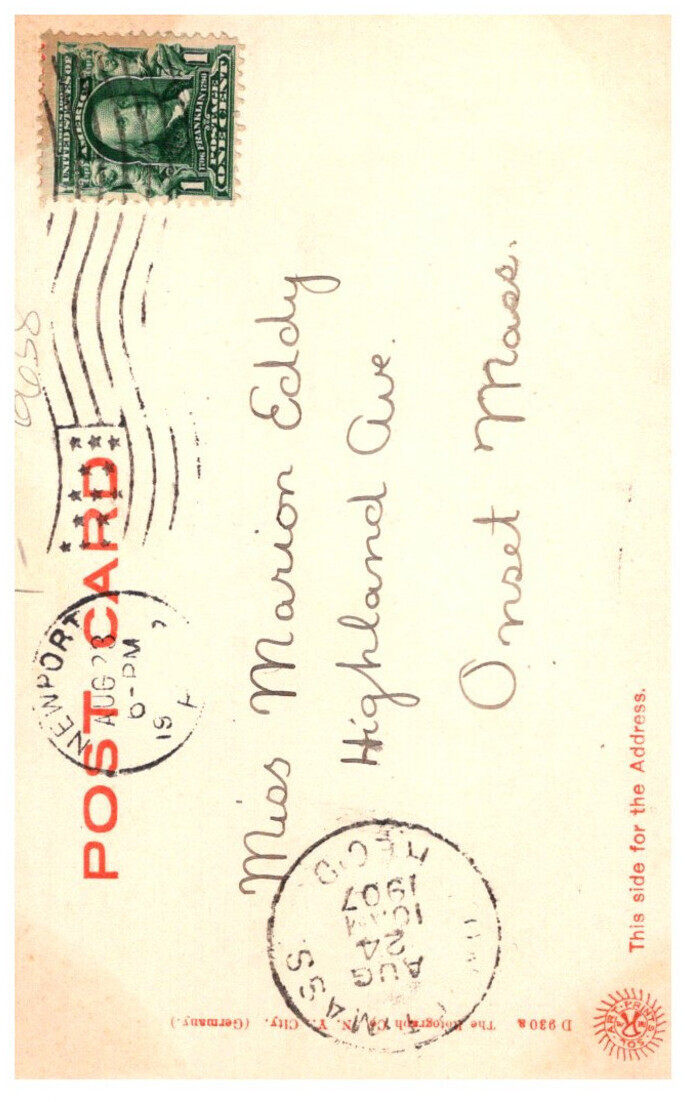 POST CARD
9658
UNITED STATES OF AMERICA
1706 FRANKLIN 1790
POSTAGE
1 ONE CENT 1
NEWPORT
AUG 23
6-PM
19
Miss Marion Eddy
Highland Ave.
Onset Mass.
MASS
AUG
24
1907
REC'D
D 930 a The Rotograph Co., N. Y. City. (Germany.)
This side for the Address.